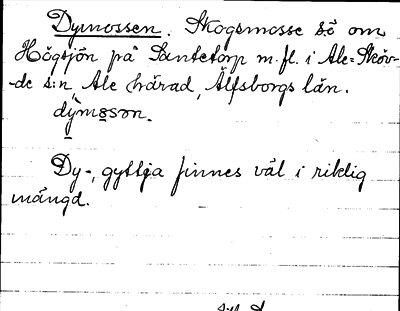 Dymossen. Skogsmosse sö om
Högsjön på Santetorp m.fl. i Ale-Sköv-
-de s:n, Ale härad, Älfsborgs län.
dỳmo̱sən.
Dy-, gyttja finnes väl i riklig
mängd.